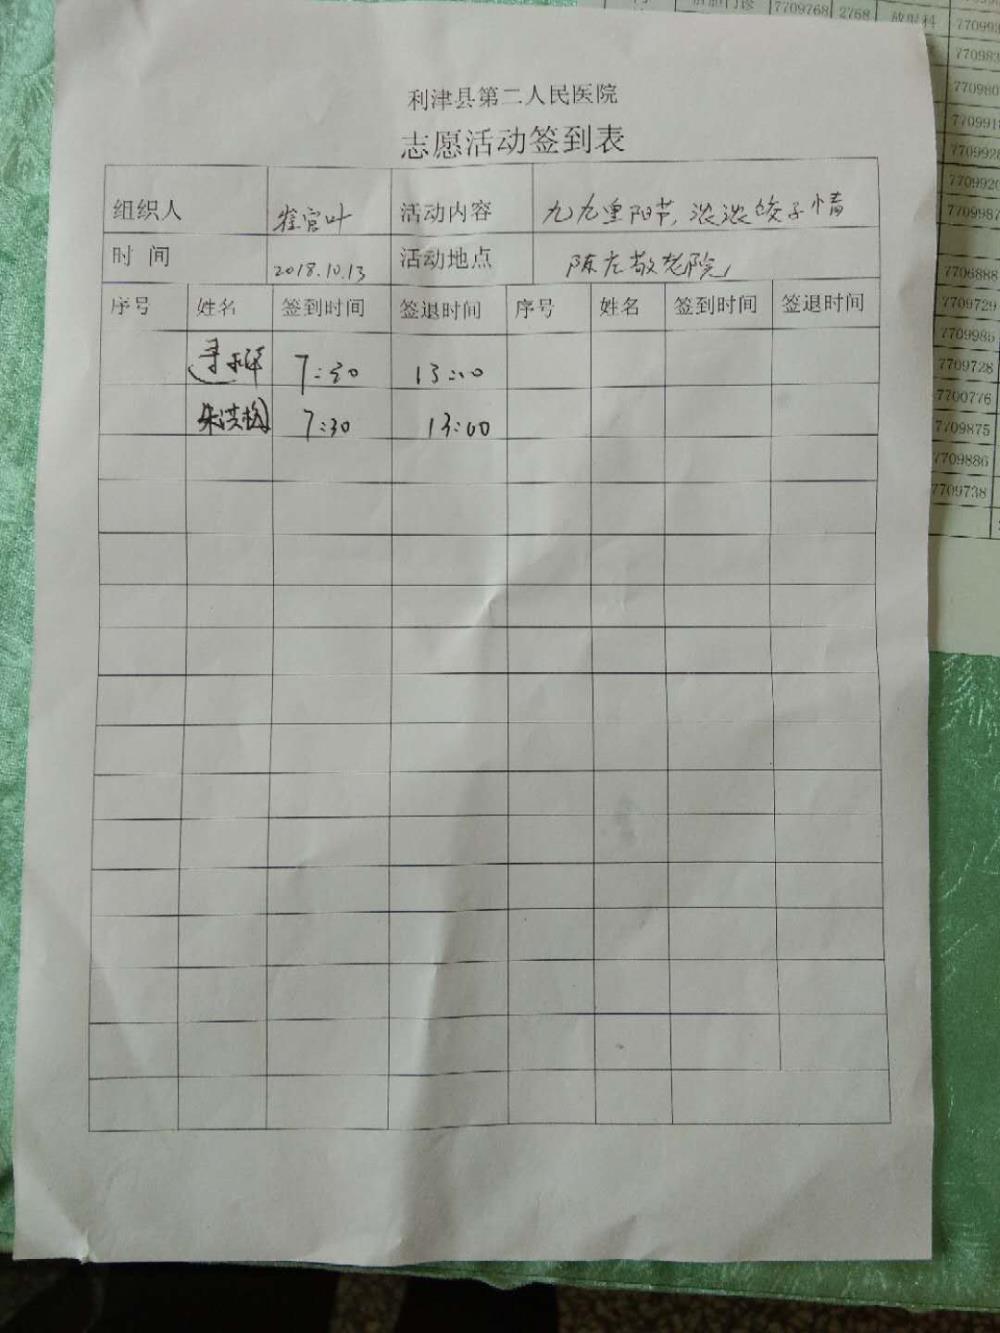 利津县第二人民医院
志愿活动签到表
组织人 崔宫叶 活动内容 九九重阳节,浓浓饺子情
时 间 2018.10.13 活动地点 陈庄敬老院
序号 姓名 签到时间 签退时间 序号 姓名 签到时间 签退时间
7:30 13:00
朱洪梅 7:30 13:00
7709768 2768 放射科
7706888
7709729
7709985
7709728
7700776
7709875
7709886
7709738